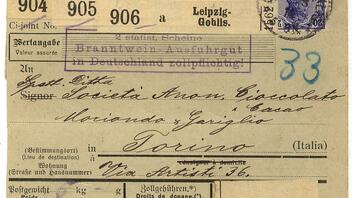 904 905 906
a Leipzig-
Gohlis.
Ci-joint No.
2 statist. Scheine
Wertangabe
Valeur assurée
Branntwein-Ausfuhrgut
in Deutschland zollpflichtig!
33
An
Spett. Ditta
Signor Società Anon. Cioccolato
e Cacao
Moriondo & Gariglio
in Torino (Italia)
(Bestimmungsort)
(Lieu de destination)
Wohnung
(Straße und Hausnummer)
Via Artisti 36.
Postgewicht kg g
Poids
Zollgebühren.*)
Droits de douane.*)